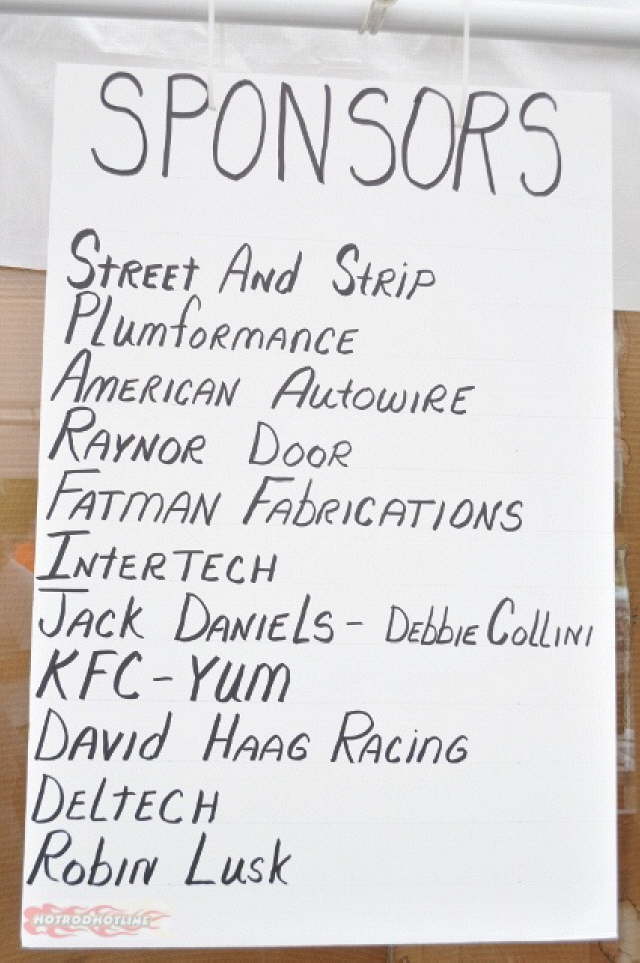 SPONSORS
Street And Strip
Plumformance
American Autowire
Raynor Door
Fatman Fabrications
Intertech
Jack Daniels - Debbie Collini
KFC - Yum
David Haag Racing
Deltech
Robin Lusk
HOTRODHOTLINE